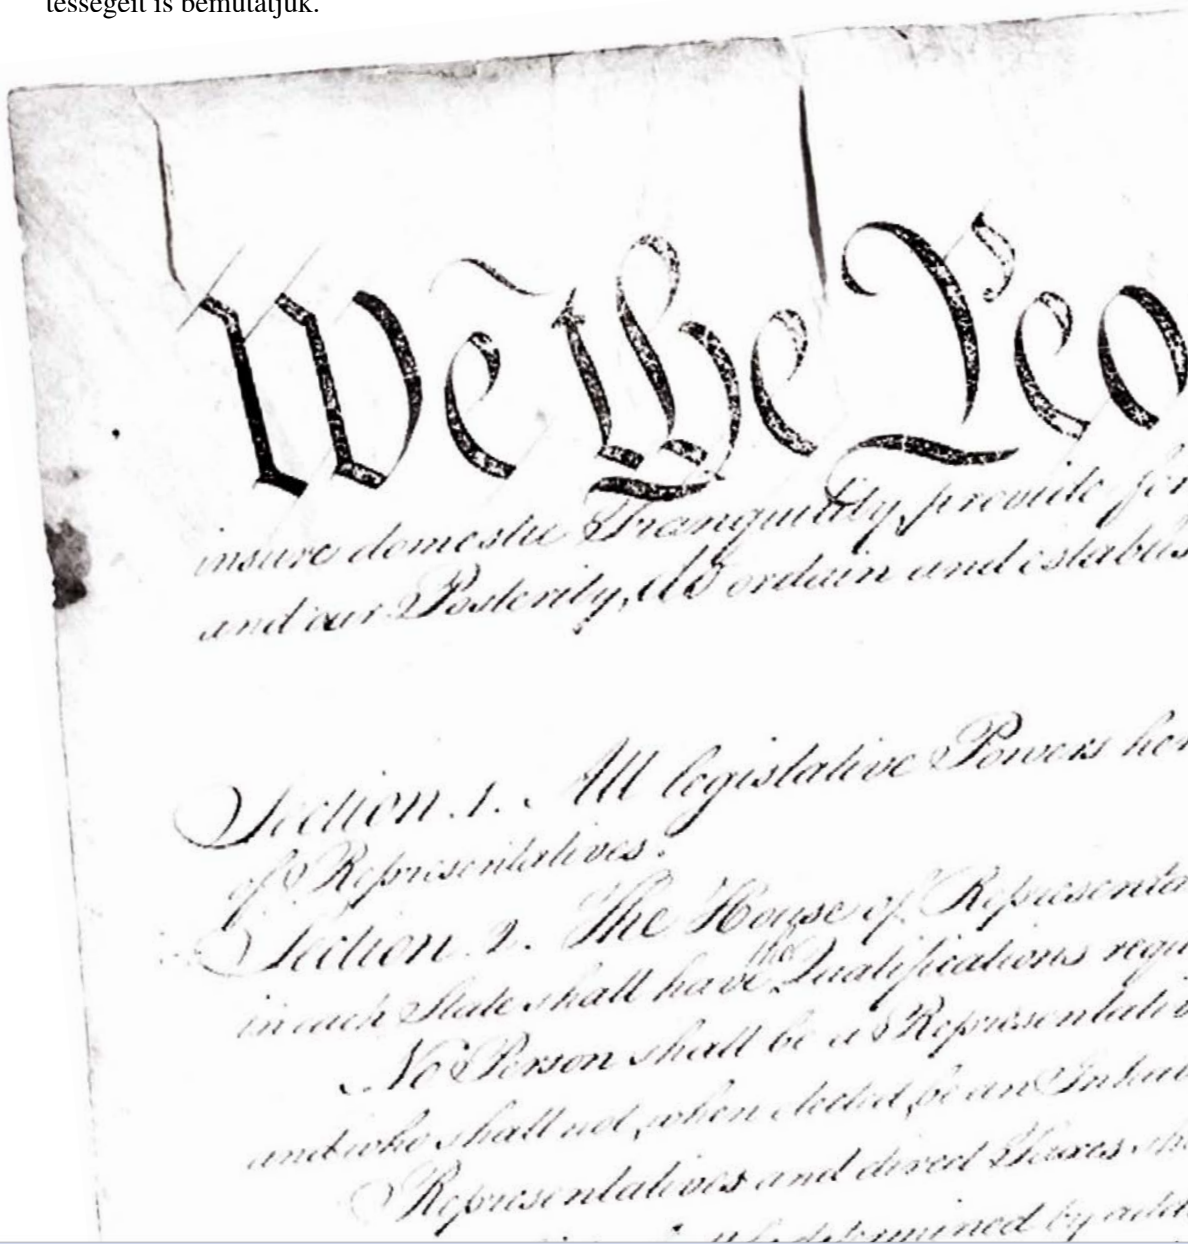 tességeit is bemutatjuk.
We the Peo
insure domestic Tranquility, provide for
and our Posterity, do ordain and establis
Section. 1. All legislative Powers her
of Representatives.
Section. 2. The House of Representa
the
in each State shall have Qualifications requi
No Person shall be a Representativ
and who shall not, when elected, be an Inhab
Representatives and direct Taxes sha
determined by addi